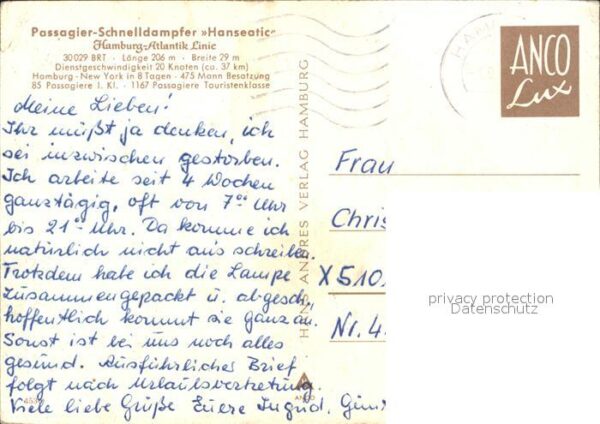 Passagier-Schnelldampfer »Hanseatic«
Hamburg-Atlantik Linie
30029 BRT · Länge 206 m · Breite 29 m
Dienstgeschwindigkeit 20 Knoten (ca. 37 km)
Hamburg - New York in 8 Tagen · 475 Mann Besatzung
85 Passagiere I. Kl. · 1167 Passagiere Touristenklasse
Meine Lieben!
Ihr müßt ja denken, ich
sei inzwischen gestorben.
Ich arbeite seit 4 Wochen
ganztägig, oft von 7⁰⁰ Uhr
bis 21⁰⁰ Uhr. Da komme ich
natürlich nicht aus schreiben.
Trotzdem habe ich die Lampe
zusammengepackt u. abgesch.,
hoffentlich kommt sie ganz an.
Sonst ist bei uns noch alles
gesund. Ausführlicher Brief
folgt nach Urlaubsvertretung.
Viele liebe Grüße Euere Ingrid,
HANS ANDRES VERLAG HAMBURG
ANCO
ANCO
Lux
Frau
Chris
X510
Nr. 4
privacy protection
Datenschutz